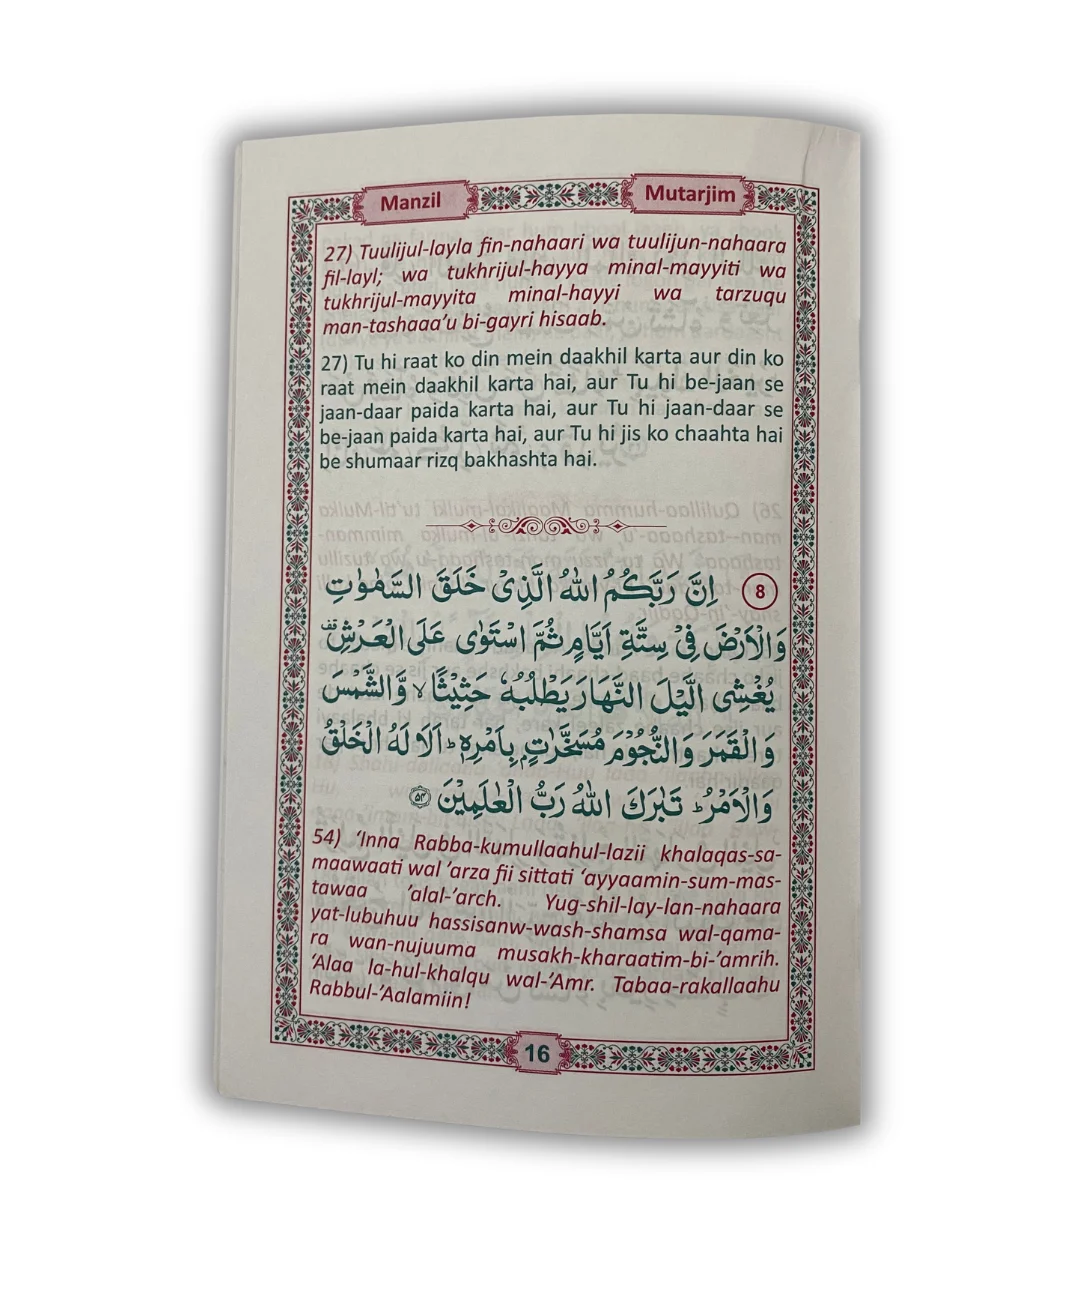 Manzil
Mutarjim
27) Tuulijul-layla fin-nahaari wa tuulijun-nahaara
fil-layl; wa tukhrijul-hayya minal-mayyiti wa
tukhrijul-mayyita minal-hayyi wa tarzuqu
man-tashaaa’u bi-gayri hisaab.
27) Tu hi raat ko din mein daakhil karta aur din ko
raat mein daakhil karta hai, aur Tu hi be-jaan se
jaan-daar paida karta hai, aur Tu hi jaan-daar se
be-jaan paida karta hai, aur Tu hi jis ko chaahta hai
be shumaar rizq bakhashta hai.
8 اِنَّ رَبَّكُمُ اللّٰهُ الَّذِیْ خَلَقَ السَّمٰوٰتِ
وَالْاَرْضَ فِیْ سِتَّةِ اَیَّامٍ ثُمَّ اسْتَوٰی عَلَی الْعَرْشِ
یُغْشِی الَّیْلَ النَّهَارَ یَطْلُبُهٗ حَثِیْثًا ۙ وَّالشَّمْسَ
وَالْقَمَرَ وَالنُّجُوْمَ مُسَخَّرٰتٍۭ بِاَمْرِهٖ ؕ اَلَا لَهُ الْخَلْقُ
وَالْاَمْرُ ؕ تَبٰرَكَ اللّٰهُ رَبُّ الْعٰلَمِیْنَ ۝۵۴
54) ‘Inna Rabba-kumullaahul-lazii khalaqas-sa-
maawaati wal ’arza fii sittati ‘ayyaamin-sum-mas-
tawaa ’alal-’arch. Yug-shil-lay-lan-nahaara
yat-lubuhuu hassisanw-wash-shamsa wal-qama-
ra wan-nujuuma musakh-kharaatim-bi-’amrih.
‘Alaa la-hul-khalqu wal-’Amr. Tabaa-rakallaahu
Rabbul-’Aalamiin!
16